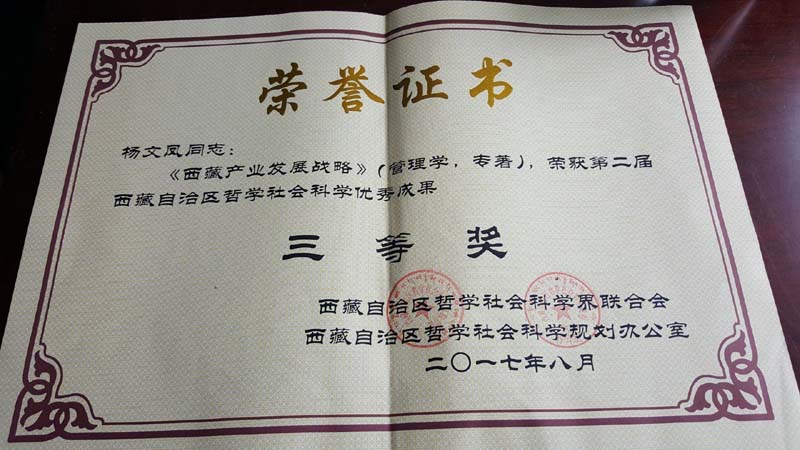 荣誉证书
杨文凤同志：
《西藏产业发展战略》（管理学，专著），荣获第二届
西藏自治区哲学社会科学优秀成果
三等奖
西藏自治区哲学社会科学界联合会
西藏自治区哲学社会科学规划办公室
二〇一七年八月